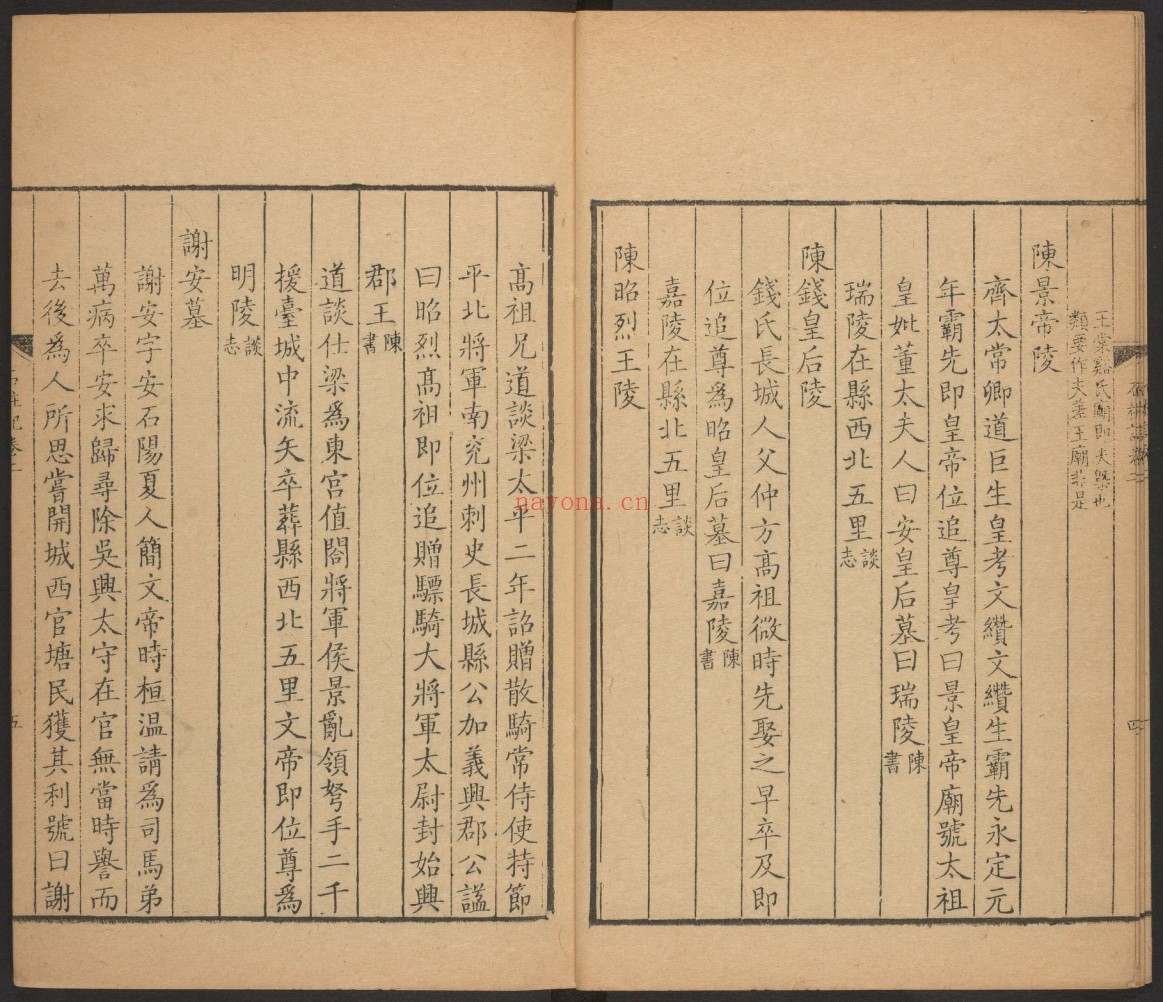 王棠谿氏廟即夫槩也
類要作夫差王廟非是
陳景帝陵
齊太常卿道巨生皇考文纘文纘生霸先永定元
年霸先即皇帝位追尊皇考曰景皇帝廟號太祖
皇妣董太夫人曰安皇后墓曰瑞陵陳書
瑞陵在縣西北五里談志
陳錢皇后陵
錢氏長城人父仲方髙祖微時先娶之早卒及即
位追尊爲昭皇后墓曰嘉陵陳書
嘉陵在縣北五里談志
陳昭烈王陵
髙祖兄道談梁太平二年詔贈散騎常侍使持節
平北將軍南兖州刺史長城縣公加義興郡公諡
曰昭烈髙祖即位追贈驃騎大將軍太尉封始興
郡王陳書
道談仕梁爲東宫值閤將軍侯景亂領弩手二千
援臺城中流矢卒葬縣西北五里文帝即位尊爲
明陵談志
謝安墓
謝安字安石陽夏人簡文帝時桓温請爲司馬弟
萬病卒安求歸尋除吳興太守在官無當時譽而
去後為人所思嘗開城西官塘民獲其利號曰謝
四
五
nayona.cn